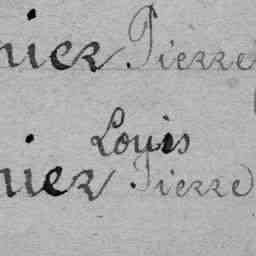 nier Pierre
Louis
nier Pierre